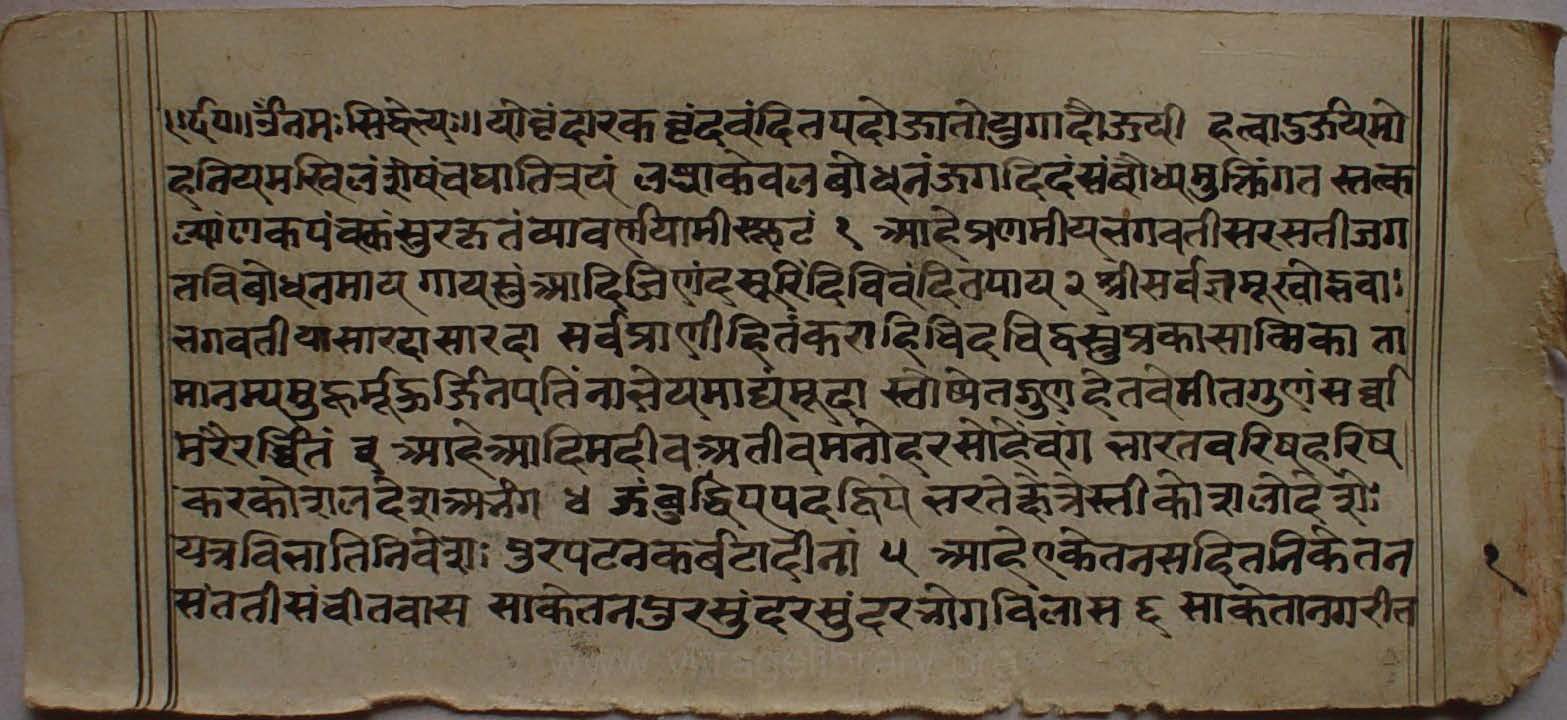 ॥र्द०॥ ॐ नमः सिद्धेभ्यः॥ यो वृंदारकवृंदवंदितपदो जातो युगादौ जयी हत्वा दुर्जयमो
हनियमखिलं शेषं वघातित्रयं लब्ध्वा केवलबोधनं जगदिदं संबोध्य मुक्तिं गत स्तत्क
ल्यांणकपंचकं सुरकृतं व्यावर्णयामी स्फुटं १ आहे प्रणमीय भगवती सरसती जग
तविबोधनमाय गायस्युं आदि जिणंद सूरिंदिवि वंदित पाय २ श्रीसर्वज्ञमूखोद्भवाः
भगवती या सारदा सारदा सर्वप्राणीहितंकरा हि विदविद्वस्तुप्रकासात्मिका ता
मानम्य मुहुर्मूर्द्धर्जिनपतिं नाभेयमाद्यं मूदा स्तोष्ये तगुणहेतवे मीतगुणं सर्व्वा
मरैरर्च्चितं ३ आहे आदिमदीव अतीव मनोहर सोहें वंग भारत वरिष हरिष
कर कोशल देश अनंग ४ जंबुद्विपपदद्विपे भरते क्षेत्रेस्ती कोशलो देशोः
यत्र विभाति निवेशः पुरपटनकर्बटादीनां ५ आहे एकेतन सहित निकेतन
संतती संवीतवास साकेतनपुर सुंदर सुंदर भोगविलास ६ साकेतानगरी त
१
www.vitragelibrary.org